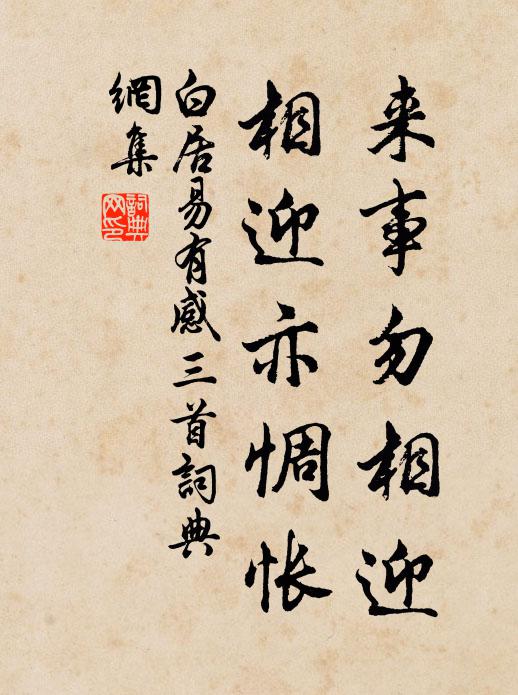 来事勿相迎
相迎亦惆怅
白居易有感三首詞典
網集
詞典網印